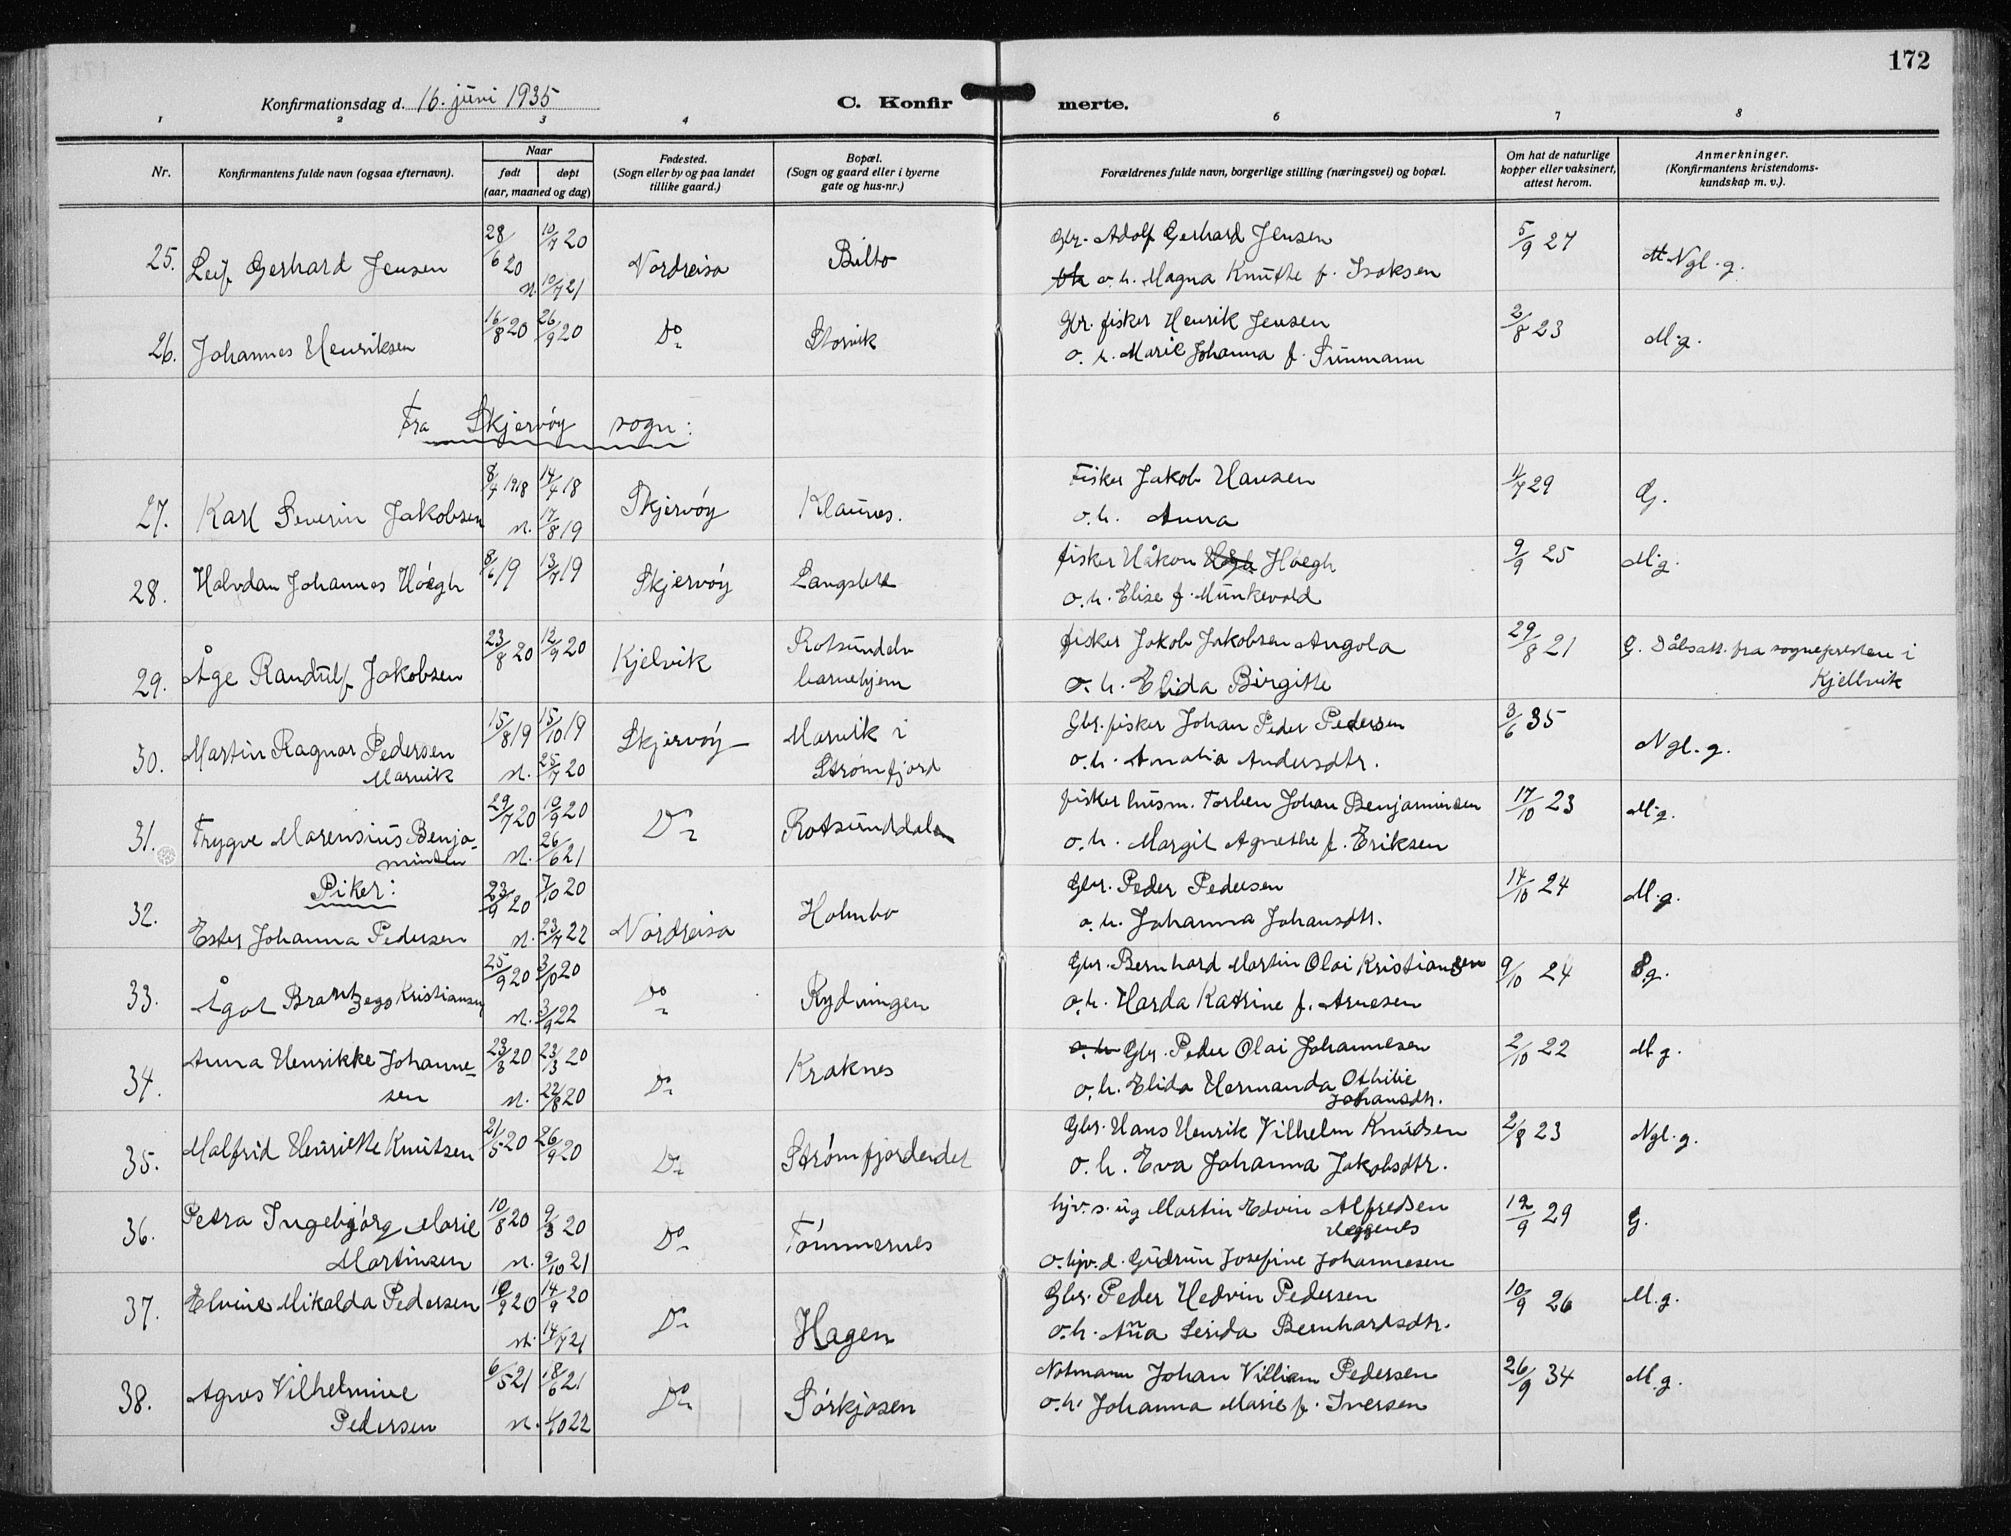 172
Konfirmationsdag d. 16. juni 1935
C. Konfirmerte.
1 2 3 4 6 7 8
Nr.
Konfirmantens fulde navn (ogsaa efternavn).
Naar
født døpt
(aar, maaned og dag)
Fødested.
(Sogn eller by og paa landet
tillike gaard.)
Bopæl.
(Sogn og gaard eller i byerne
gate og hus-nr.)
Forældrenes fulde navn, borgerlige stilling (næringsvei) og bopæl.
Om hat de naturlige
kopper eller vaksinert,
attest herom.
Anmerkninger.
(Konfirmantens kristendoms-
kundskap m. v.).
25. Leif Gerhard Jensen 28/6 20 10/7 20 Nordreisa Bilto Gbr. Adolf Gerhard Jensen 5/9 27 Ngl. g.
N. 10/7 21 o. h. Magna Knuthe f. Isaksen
26. Johannes Henriksen 16/8 20 26/9 20 Do Storvik Gbr. fisker Henrik Jensen 2/8 23 M.g.
o. h. Marie Johanna f. Sunmann
Fra Skjervöy sogn:
27. Karl Severin Jakobsen 8/4 1918 14/4 18 Skjervöy Klaunes. Fisker Jakob Hansen 11/7 29 G.
N. 17/8 19 o. h. Anna
28. Halvdan Johannes Höegh 8/6 19 13/7 19 Skjervöy Langslett fisker Håkon Höegh 9/9 25 M.g.
o. h. Elise f. Munkevold
29. Åge Randulf Jakobsen 23/8 20 12/9 20 Kjelvik Rotsundelv fisker Jakob Jakobsen Angola 29/8 21 G. Dåbsatt. fra sognepresten i
barnehjem o. h. Elida Birgitte Kjellvik
30. Martin Ragnar Pedersen 15/8 19 15/10 19 Skjervöy Marvik i Gbr. fisker Johan Peder Pedersen 3/6 35 Ngl. g.
Marvik N. 25/7 20 Strømfjord o. h. Amalia Andersdtr.
31. Trygve Marensius Benja- 29/7 20 10/9 20 Do Rotsunddalen fisker husm. Torben Johan Benjaminsen 17/10 23 M.g.
minsen N. 26/6 21 o. h. Margit Agnethe f. Eriksen
Piker:
32. 23/9 20 7/10 20 Gbr. Peder Pedersen 14/10 24 M.g.
Ester Johanna Pedersen N. 23/7 22 Nordreisa Holmbo o. h. Johanna Johansdtr.
33. Ågot Brantzegg Kristiansen 25/9 20 3/10 20 Do Rydningen Gbr. Bernhard Martin Olai Kristiansen 9/10 24 g.
N. 3/9 22 o. h. Harda Katrine f. Arnesen
34. Anna Henrikke Johanne- 23/3 20 23/3 20 Do Kraknes Gbr. Peder Olai Johannesen 2/10 22 M.g.
sen N. 22/8 20 o. h. Elida Hermanda Othilie
Johansdtr.
35. Malfrid Henriette Knutsen 21/5 20 26/9 20 Do Strømfjordeidet Gbr. Hans Henrik Vilhelm Knudsen 2/8 23 Ngl. g.
o. h. Eva Johanna Jakobsdtr.
36. Petra Ingebjörg Marie 10/8 20 9/3 20 Do Tömmernes hjv. s. ug Martin Edvin Alfredsen 12/9 29 G.
Heggenes
Martinsen N. 9/10 21 o. hjv. d. Gudrun Josefine Johannesen
37. Elvine Mikalda Pedersen 10/9 20 14/9 20 Do Hagen Gbr. Peder Hedvin Pedersen 10/9 26 M.g.
N. 14/7 21 o. h. Anna Serida Bernhardsdtr.
38. Agnes Vilhelmine 6/5 21 18/6 21 Do Sörkjosen Notmann Johan Villiam Pedersen 26/9 34 M.g.
Pedersen N. 1/10 22 o. h. Johanna Marie f. Iversen